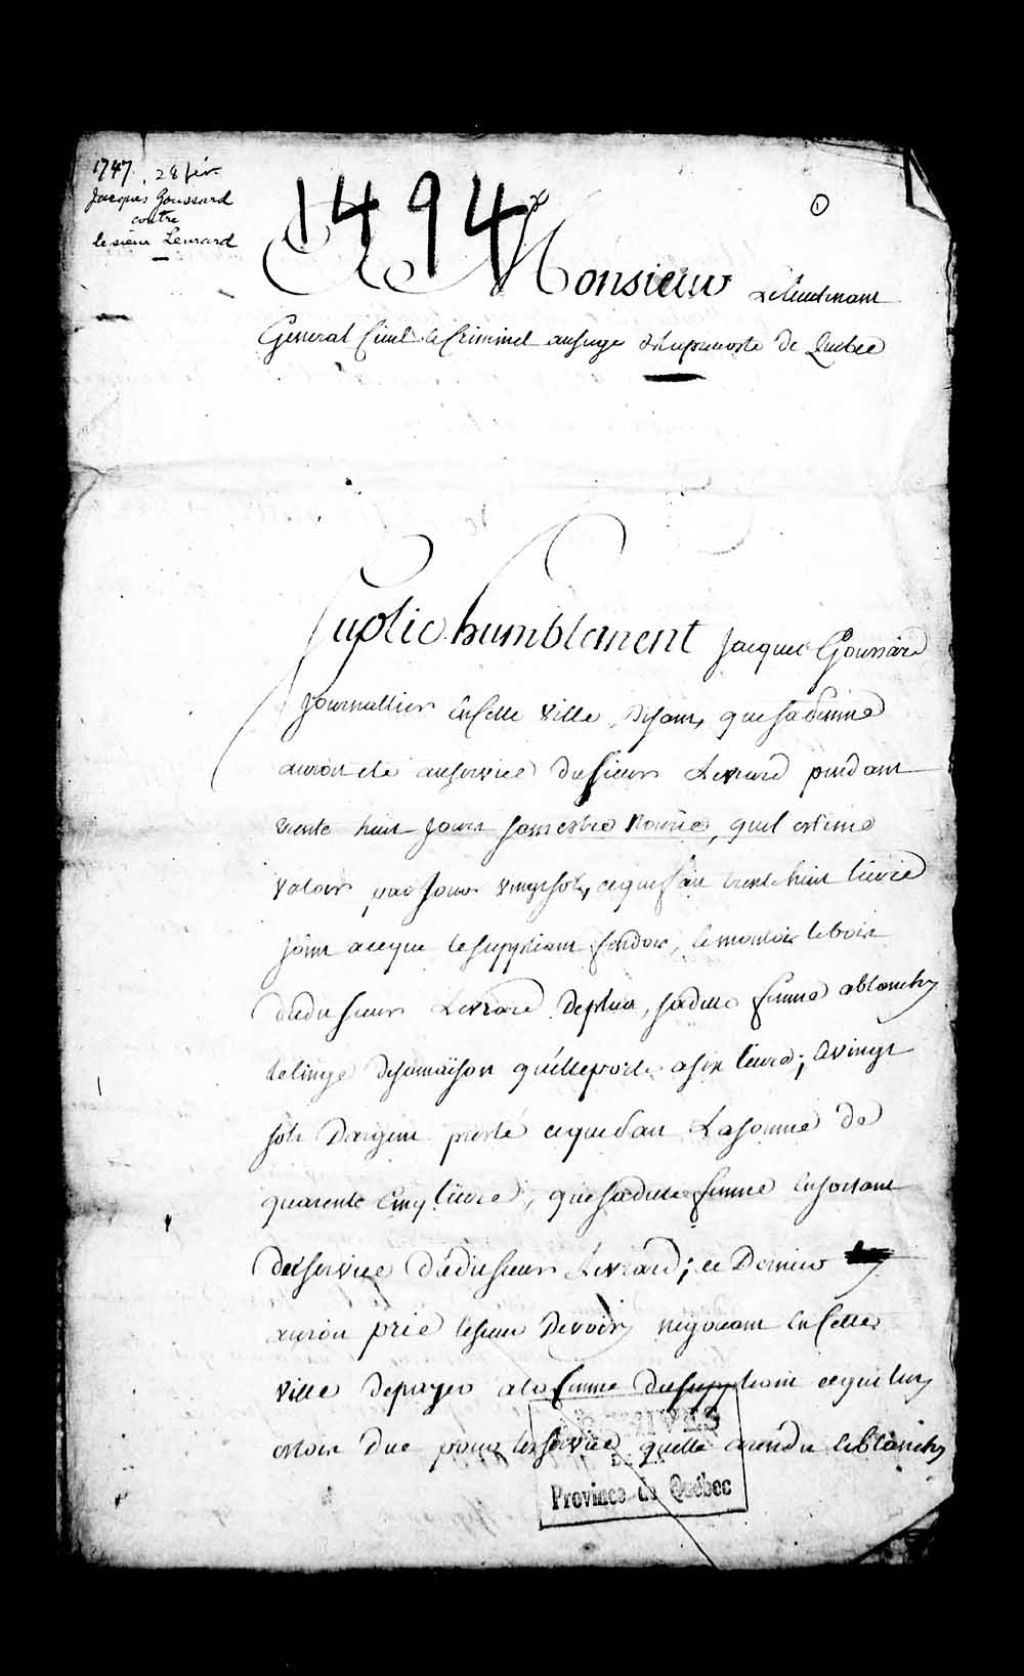 1747. 28 fév.
Jacques Goussard
contre
le sieur Levrard
1494
1
Monsieur Lelieutenant
General Civil & Criminel ausiege delaprevosté de Quebec
Suplie humblement Jacques Goussard
Journallier En Cette Ville, Disant, que sa femme
auroit eté auservice dusieur Levrard pendant
trente huit Jours sans estre Nourie, quel estime
valoir par Jour vingt sols, cequi fait trente huit livre
Joint aceque lesuppliant fendoit, le bois
dudit sieur Levrard Deplus, sadite femme a blanchy
Lelinge Desamaison quelleporte a six livre; & vingt
sols Dargent presté cequi fait La somme de
quarente Cinq livre, que sadite femme En sortant
Duservice dudit sieur Levrard; ce Dernier
auroit prié lesieur Devoisy negotiant En Cette
ville Depayer ala femme Dusuppliant cequi luy
estoit due pour les service quelle a rendu le blanchy
ARCHIVES
DE LA
Province de Québec